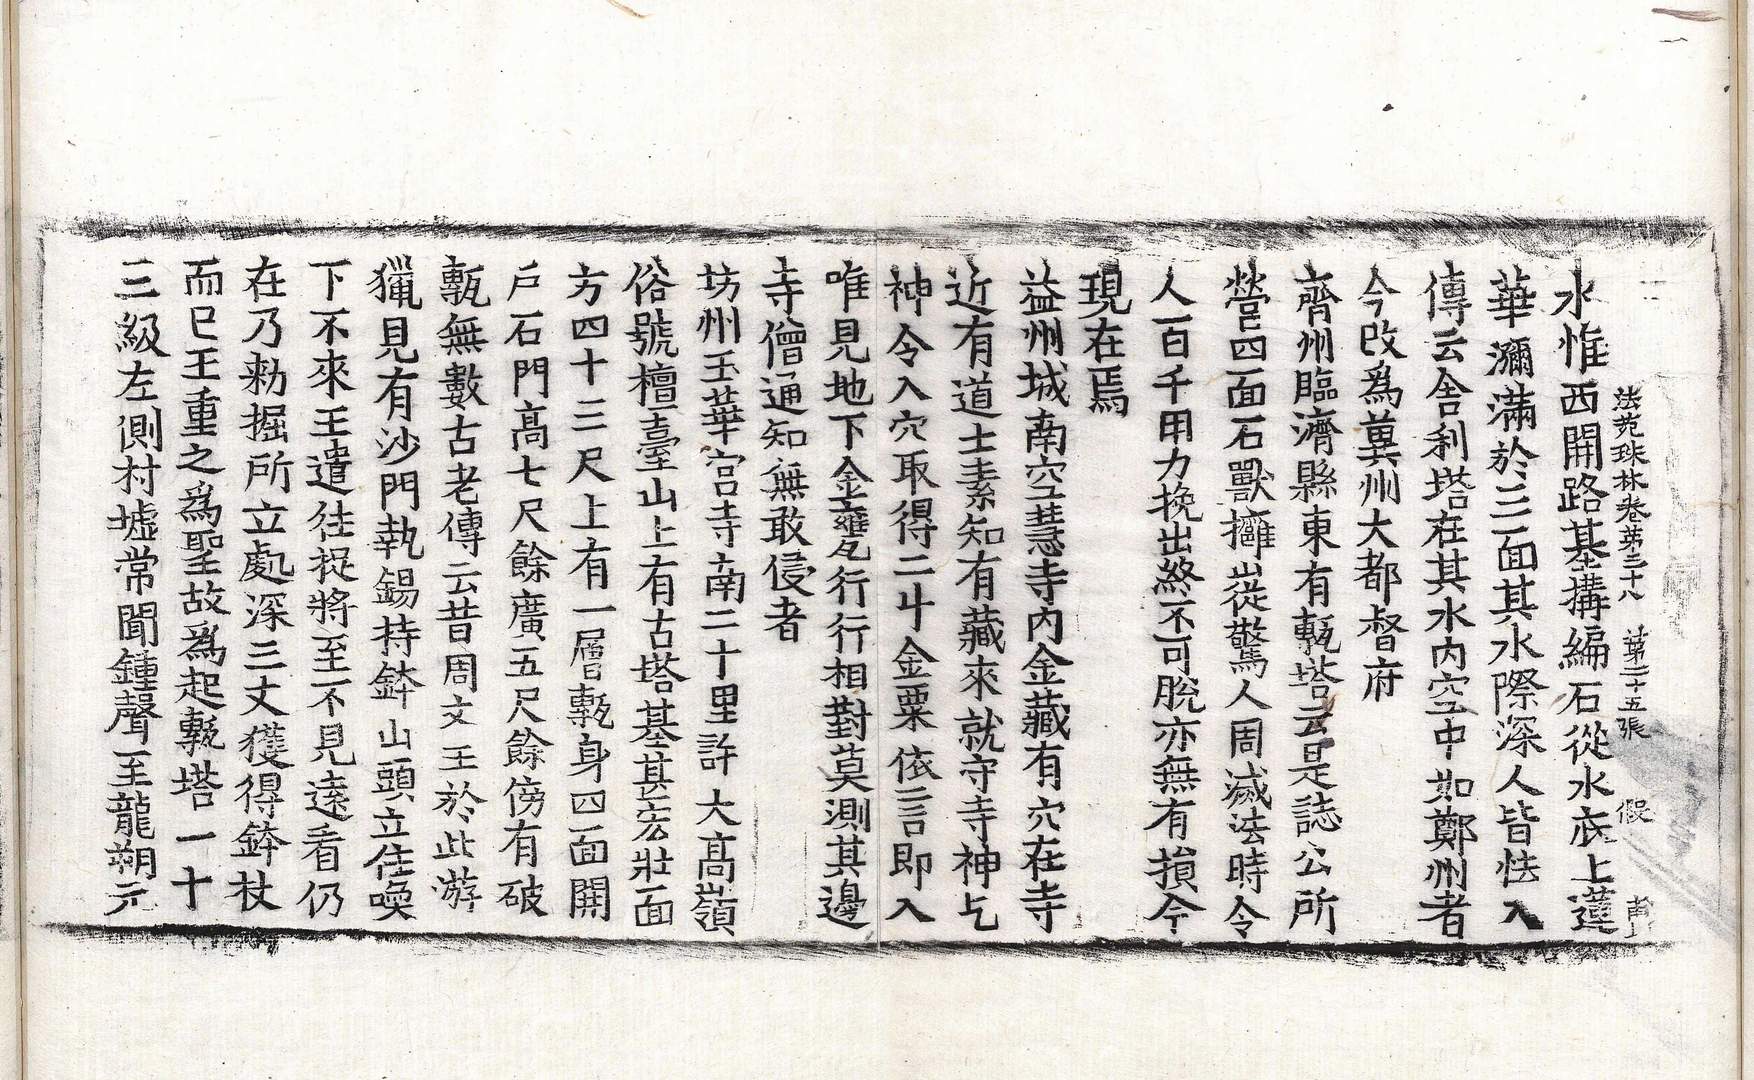 法苑珠林卷第三十八 第二十五張 假
水惟西開路基搆編石從水底上蓮
華瀰滿於三面其水際深人皆怯入
傳云舍利塔在其水內空中如鄭州者
今改爲兾州大都督府
齊州臨濟縣東有甎塔云是誌公所
營四面石獸擁從驚人周滅法時令
人百千用力挽出終不可脫亦無有損今
現在焉
益州城南空慧寺內金藏有穴在寺
近有道士素知有藏來就守寺神乞
神令入穴取得二斗金粟依言即入
唯見地下金甕瓦行行相對莫測其邊
寺僧通知無敢侵者
坊州玉華宮寺南二十里許大高嶺
俗號檀臺山上有古塔基甚宏壯面
方四十三尺上有一層甎身四面開
戶石門高七尺餘廣五尺餘傍有破
甎無數古老傳云昔周文王於此游
獵見有沙門執錫持鉢山頭立住喚
下不來王遣往捉將至不見遠看仍
在乃勑掘所立處深三丈獲得鉢杖
而已王重之爲聖故爲起甎塔一十
三級左側村墟常聞鍾聲至龍朔元